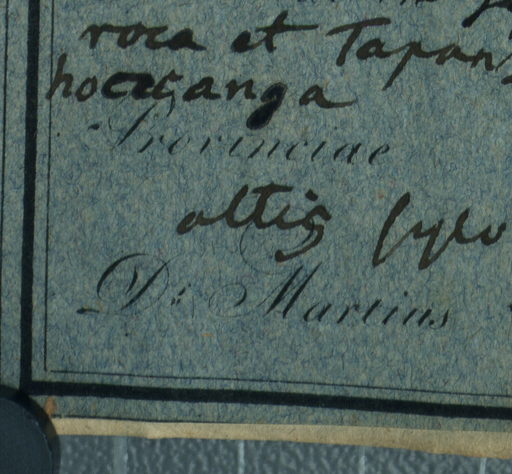 roca et Tapan
hocuanga
Provinciae
altis sylv
Dr. Martius